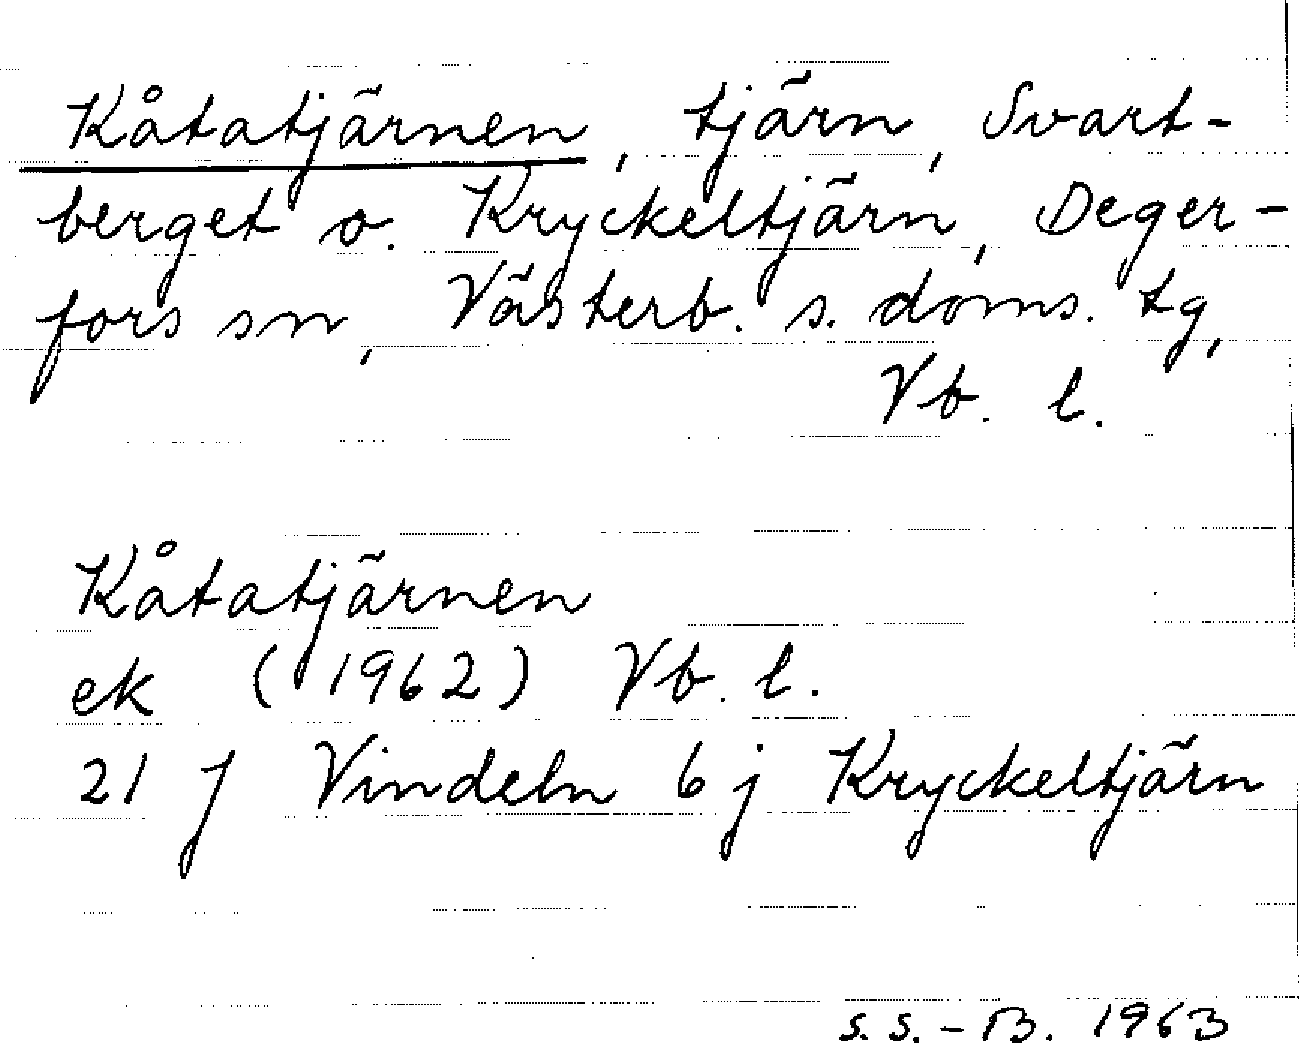 Kåtatjärnen, tjärn, Svart-
berget o. Kryckeltjärn, Deger-
fors sn, Västerb. s. doms. tg,
Vb. l.
Kåtatjärnen
ek (1962) Vb. l.
21 J Vindeln 6 j Kryckeltjärn
S. S. - B. 1963